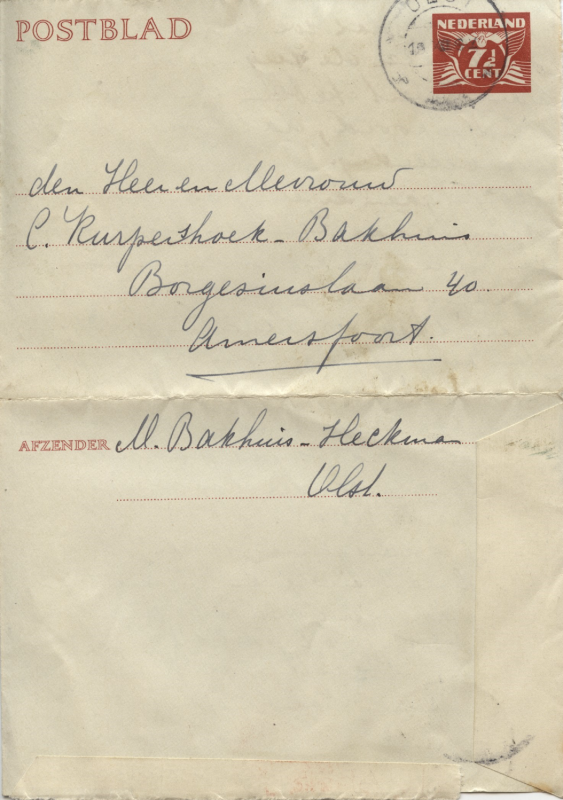 POSTBLAD
OLST
NEDERLAND
7½
CENT
den Heer en Mevrouw
C. Kurpershoek - Bakhuis
Borgesiuslaan 40.
Amersfoort.
AFZENDER M. Bakhuis - Heckman
Olst.